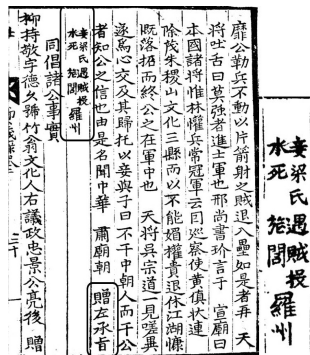 靡公勒兵不動以片箭射之賊退入壘如是者再 天
將吐舌曰莫強者進士軍也邢尚書玠言于 宣廟曰
本國諸將惟林懽兵常冠軍云因巡察使黃愼狀連
除茂朱稷山文化三縣而以不能媚權貴退休江湖慷
旣落招而終公之在軍中也 天將吳宗道一見嗟異
遂爲心交及其歸托以妾與子曰不干中朝人而干公
者知公之信也由是名聞中華 肅廟朝 贈左承旨
妾梁氏遇賊投
水死 旌閭 羅州
同倡諸公事實
柳持敬字德久號竹翁文化人右議政忠景公亮後 贈
妾梁氏遇賊投
水死 旌閭 羅州